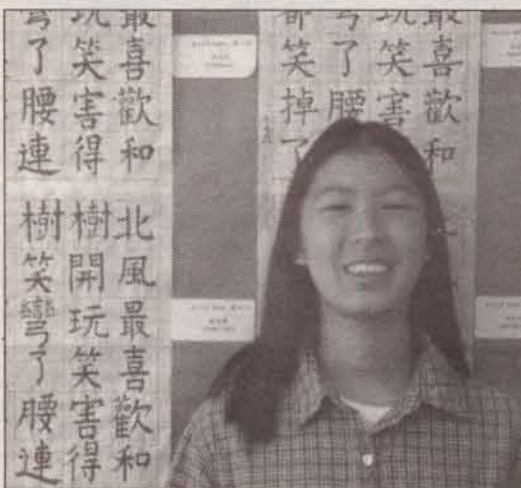 最喜歡和
玩笑害得
彎了腰連
北風最喜歡和
樹開玩笑害得
樹笑彎了腰連
最喜歡和
玩笑害
彎了腰
都笑掉了